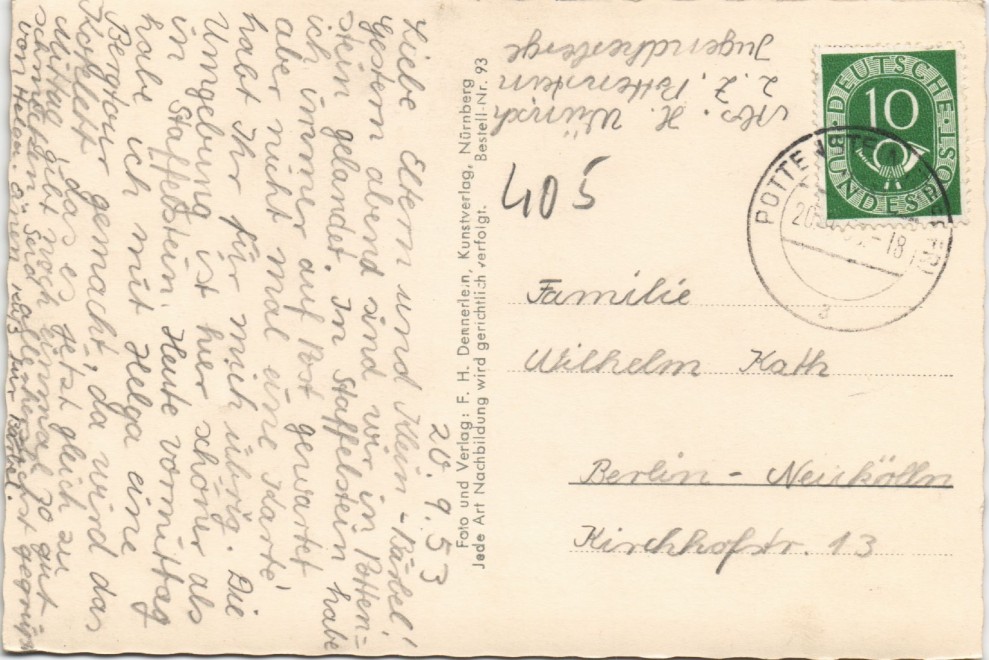 20. 9. 53
Liebe Eltern und Klein-Bärbel!
Gestern abend sind wir in Potten-
stein gelandet. In Staffelstein habe
ich immer auf Post gewartet
aber nicht mal eine Karte
habt Ihr für mich übrig. Die
Umgebung ist hier schöner als
in Staffelstein. Heute vormittag
habe ich mit Helga eine
Bergtour gemacht, da wird das
da es jetzt gleich zu
Mittag gibt noch einmal so gut
schmecken. Seid alle herzlichst gegrüßt
von Helga. Einen Kuß für Bärbel.
Foto und Verlag: F. H. Dennerlein, Kunstverlag, Nürnberg
Jede Art Nachbildung wird gerichtlich verfolgt. Bestell-Nr.: 93
Abs. H. Wünsch
z. Z. Pottenstein
Jugendherberge
405
DEUTSCHE BUNDESPOST
10
POTTENSTEIN
20. -18
a
Familie
Wilhelm Kath
Berlin - Neukölln
Kirchhofstr. 13